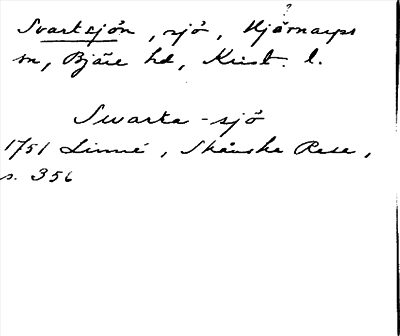 ?
Svartsjön, sjö, Hjärnarps
sn, Bjäre hd, Krist. l.
Swarta-sjö
1751 Linné, Skånska Resa,
s. 356